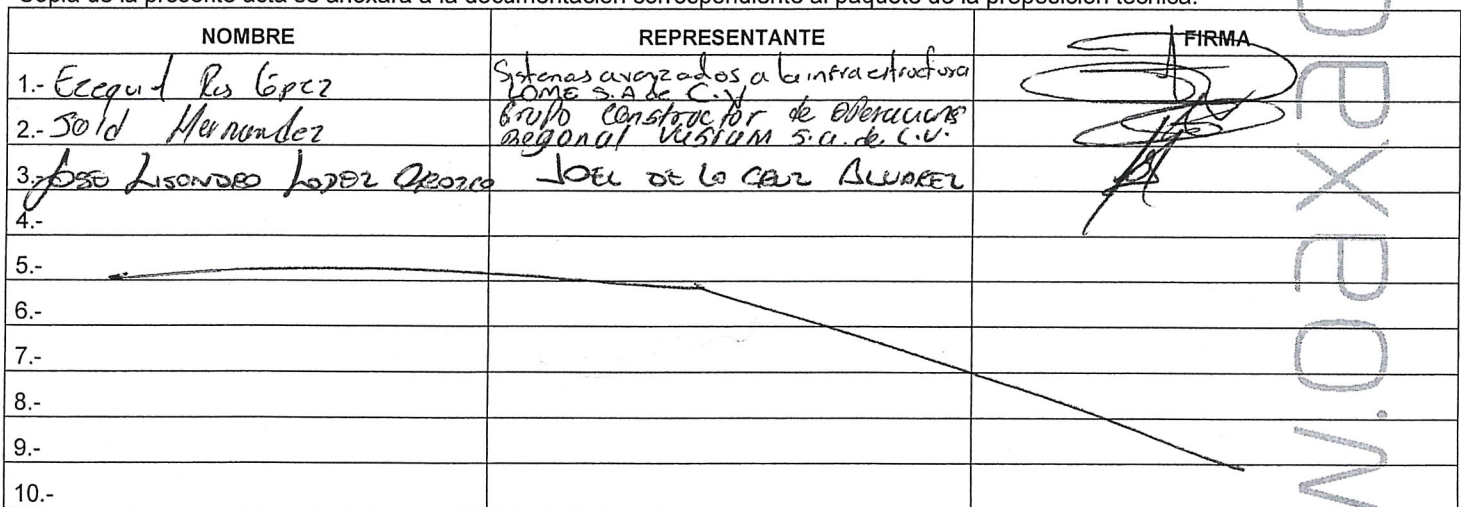 Copia de la presente acta se anexará a la documentación correspondiente al paquete de la proposición técnica.
NOMBRE REPRESENTANTE FIRMA
1.- Ezequiel López Sistemas avanzados a la infraestructura
LOME S.A de C.V
2.- Hernandez Grupo Constructor de Operaciones
Regional S.a. de C.V.
3.- Jose Lisandro Lopez Orozco JOEL DE LA CRUZ ALVAREZ
4.-
5.-
6.-
7.-
8.-
9.-
10.-